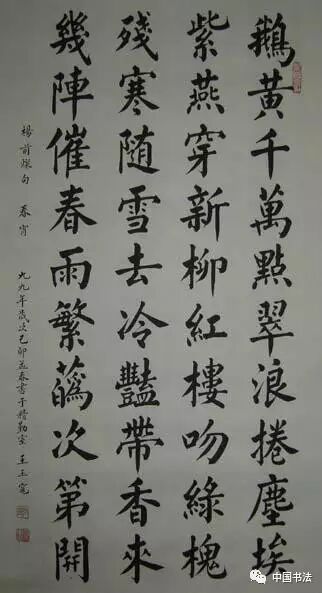 鵝黃千萬點翠浪捲塵埃
紫燕穿新柳紅樓吻綠槐
殘寒随雪去冷豔帶香來
幾陣催春雨繁蘤次第開
楊前 句 春宵 九九年歲次己卯孟春書于精勤室 王玉寬
中国书法